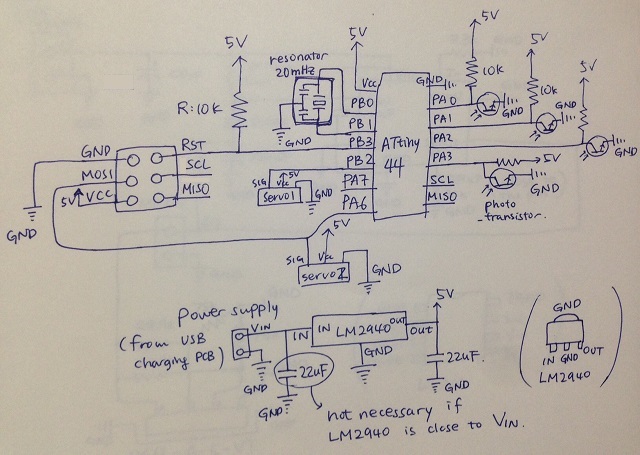 5V
resonator
20mHz
5V
5V
5V
5V
R:10K
GND
Vcc
GND
10K
10K
GND
PB0
PA0
GND
PB1
PA1
GND
PB3
ATtiny
44
PA2
GND
RST
GND
SCL
MOSI
MISO
5V
VCC
GND
PB2
PA3
5V
SIG
Vcc
5V
GND
servo1
PA7
SCL
GND
PA6
MISO
photo
-transistor.
5V
SIG
Vcc
servo2
GND
Power supply
(from USB
charging PCB)
VIN
GND
IN
IN
LM2940
OUT
OUT
GND
5V
22uF
GND
22uF.
GND
not necessary if
LM2940 is close to VIN.
GND
IN
GND
OUT
LM2940